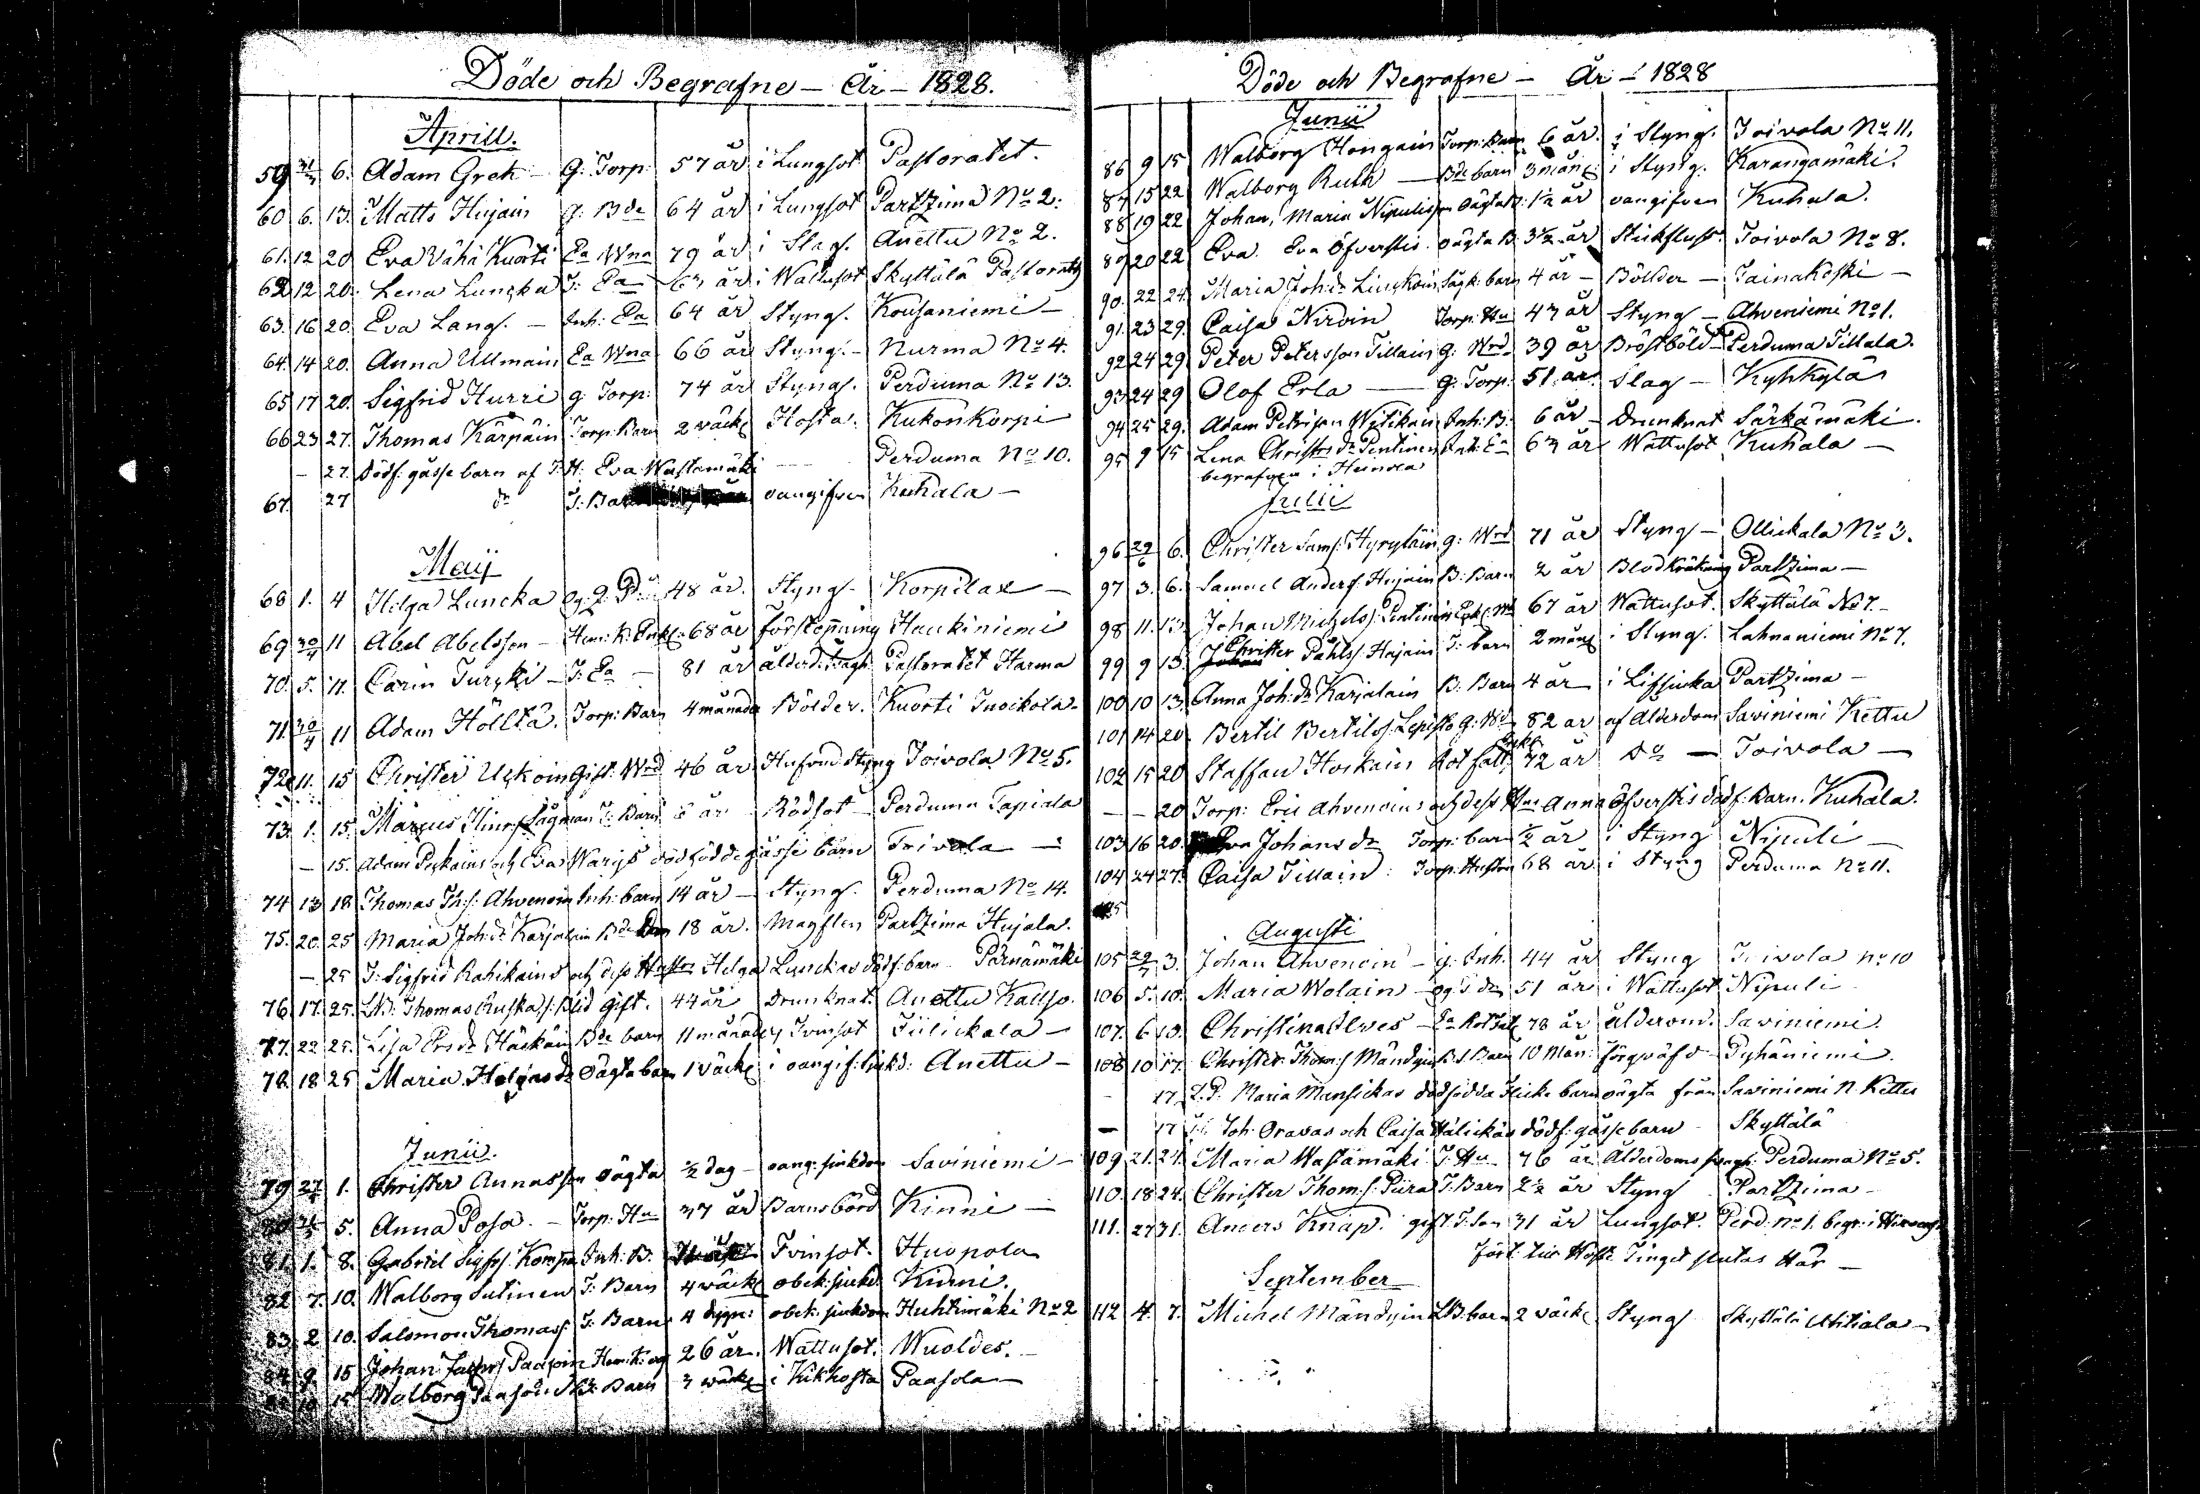 Döde och Begrafne - År - 1828.
Aprill.
59 31/3 6. Adam Grek - G: Torp: 57 år i Lungsot Pastoratet.
60 6. 13. Matts Hujain g: Bde 64 år i Lungsot Partzima No 2.
61. 12 20 Eva Vähä Kuorti Ea Wna 79 år i Slag. Anettu No 2.
62 12 20. Lena Luncka T: Ea 63 år i Wattusot Skyttälä
63. 16 20. Eva Lang. - Inh: Ea 64 år Styng. Kousaniemi -
64. 14 20. Anna Ullmain Ea Wna 66 år Styng. - Nurma No 4.
65 17 20. Sigfrid Hurri g: Torp: 74 år Styng. Perduma No 13.
66 23 27. Thomas Kärpäin Torp: Barn 2 väck Hosta. Kukonkorpi
- 27. Dödf. gåsse barn af T: H: Eva Wastamäki - Perduma No 10.
67. 27 do T: Barn oangifven Kuhala -
Maij
68 1. 4 Helga Luncka 48 år. Styng. Korpilax -
69 30/4 11 Abel Abelsson - Hem: K: Enkl: 68 år förstoppning Haukiniemi
70. 5. 11. Carin Turcki - T: Ea - 81 år älderd: svagh Pastoratet Harma
71. 30/4 11 Adam Höltta. Torp: Barn 4 månader Bölder. Kuorti Tuoikola
72 11. 15 Christer Uskoin Gift. Wrd 46 år Hufvud Styng Toivola No 5.
73. 1. 15. Marcus Hinr: Sågman T: Barn år Rödsot - Perduma Tapiala
- 15. Adam Pykäins och Eva Warijs dödföddegåsse barn Toivola -
74 13 18 Thomas Th:s: Ahvenoin Inh: barn 14 år - Styng. Perduma No 14.
75. 20. 25 Maria Joh: dr Karjalain Bde 18 år. Magflen Partzima Hujala.
- 25 T: Sigfrid Rahikains och dess Hustru Helga Lunckas dödf: barn Pärnämäki
76. 17. 25. LB: Thomas Ruska s: Blid Gift. 44 år Drunknat. Anettu Kalljo.
77. 22 25. Lisa Ersdr Häskäin Bde barn 11 månader Tvinsot Tiilickala -
78. 18 25 Maria Helgas dr oägta barn 1 väck i oangif: sjukd: Anettu -
Junii.
79 27/5 1. Christer Annasson oägta ½ dag - oang: sjukdom Saviniemi -
5. Anna Posa. - Torp: Hu 37 år Barnsbörd Kinni -
81. 1. 8. Gabriel Sigfrs: Kompa Inh: B. Tvinsot. Huopola
82 7. 10. Walborg Sutinen T: Barn 4 väck obek: sjukd Kinni.
83. 2 10. Salomon Thomass: T: Barn 4 dygn: obek: sjukdom Huhtimäki No 2
84. 9. 15 Johan Paasoin 26 år. Wattusot. Wuoldes. -
10 15 Walborg T: Barn 3 väck i Kikhosta Paasola -
Döde och Begrafne - År - 1828
Junii
86 9 15 Walborg Hongain Torp: Barn 6 år. i Styng. Toivola No 11.
87 15 22 Walborg Ruth - Bde barn 3 mån i Styng. Karangamäki.
88 19 22 Johan, Maria Nipulisson oägta B: 1½ år oangifven Kuhala.
89 20 22 Eva Eva Öfverstis oägta B. 3½ år Stickfluss. Toivola No 8.
90. 22 24. Maria Joh: dr Linckoin Sägk: barn 4 år - Bölder - Tainakoski -
91. 23 29. Caisa Nirvin Torp: Hu 43 år Styng - Ahveniemi No 1.
92 24 29. Peter Petersson Tillain g: Wrd. 39 år Bröstböld Perduma Tillala.
93 24 29 Olof Erla - g: Torp: 51 år. Slag - Kyhkylä
94 25 29. Adam Petrisson Wilikain Inh: B. 6 år - Drunknat Särkämäki.
95 9 15 Lena Christers dr Pentinen Inh: Ea 63 år Wattusot Kuhala -
begrafven i Heinola
Julii
96 29/6 6. Christer Sams: Hyryläin g: Wrd 71 år Styng - Ollickala No 3.
97 3. 6. Samuel Anders: Hujain B: Barn 2 år Blodkräkning Partzima -
98 11. 13. Johan Michels: Pentinen 67 år Wattusot. Skyttälä No 7. -
99 9 13. Christer Påhls: Hujain T: barn 2 mån i Styng. Lahnaniemi No 7.
100 10 13. Anna Joh: dr Karjalain B: Barn 4 år - i Partzima -
101 14 20 Bertil Bertils: Lepisto g: Wrd 82 år af Alderdom Saviniemi Kettu
102 15 20 Staffan Hoskain Rot fatt 72 år do - Toivola -
- - 20 Torp: Eric Ahvenoins och dess Hu Anna Öfverstis dödf: Barn. Kuhala.
103 16 20. Eva Johans dr Torp: barn ½ år i Styng Nipuli -
104 24 27. Caisa Tillain: Torp: Hustru 68 år i Styng Perduma No 11.
Augusti
105 29/7 3. Johan Ahvenoin - g: Inh. 44 år Styng Toivola no 10
106 5. 10. Maria Wolain - 51 år i Wattusot Nipuli
107. 6 10. Christina Ilves - Ea Rot fat 78 år ålderdom. Saviniemi.
108 10 17. Christer Thoms: Mändyin Bd Barn 10 Mån: Pyhäniemi.
- 17. L. P. Maria Mansickas dödfödda Flicke barn oägta från Saviniemi N. Kettu
- 17 Joh: Oravas och Caisa Hälickäs dödf: gåssebarn - Skyttälä
109 21. 24. Maria Wastamäki T: Hu 76 år Ålderdoms svagh: Perduma No 5.
110 18 24. Christer Thoms: Piira T: Barn 2½ år Styng Partzima -
111. 27 31. Anders Knap: gift T: Son 31 år Lungsot. Perd: no 1. begr: i
Tinget slutas Här -
September
112 4. 7. Michel Mändyin LB. barn 2 väck Styng Skyttälä Utitiala -